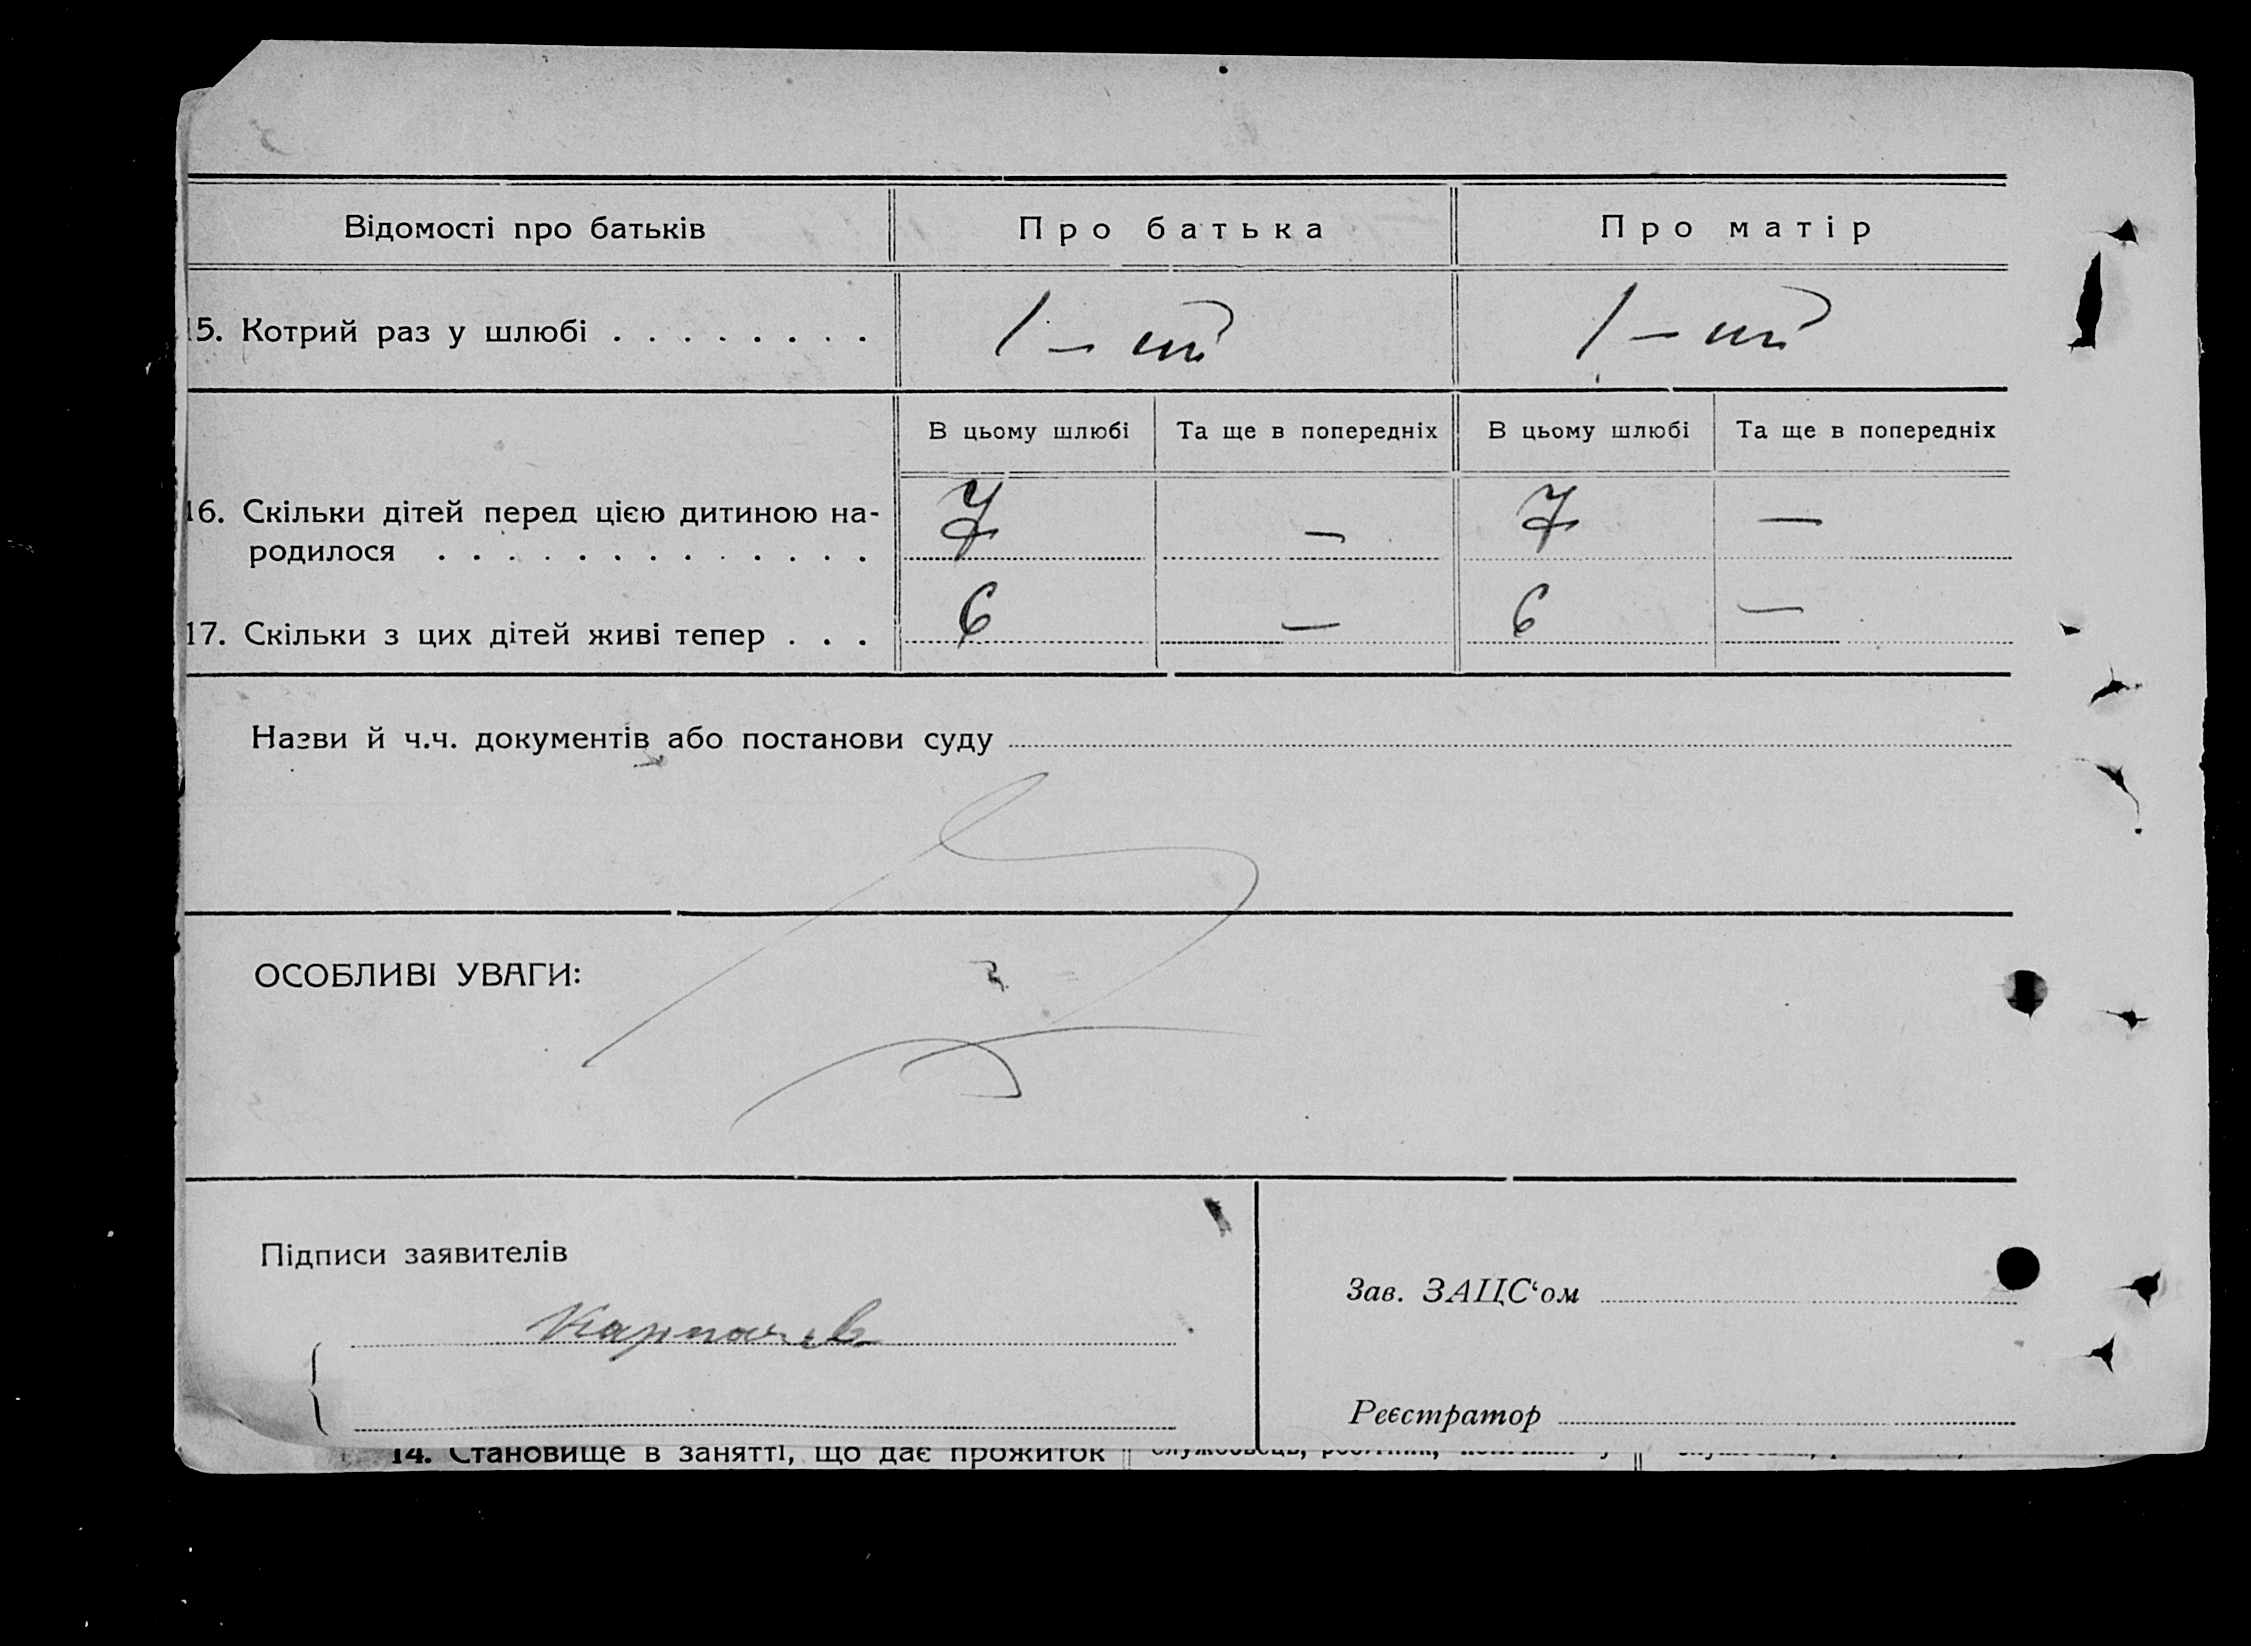 Відомості про батьків
Про батька
Про матір
15. Котрий раз у шлюбі . . . . . . . .
1-ий
1-ий
В цьому шлюбі
Та ще в попередніх
В цьому шлюбі
Та ще в попередніх
16. Скільки дітей перед цією дитиною на-
родилося . . . . . . . . . . . . .
7
—
7
—
17. Скільки з цих дітей живі тепер . . .
6
—
6
—
Назви й ч.ч. документів або постанови суду
ОСОБЛИВІ УВАГИ:
Підписи заявителів
Карпачев
Зав. ЗАЦС‘ом
Реєстратор
14. Становище в занятті, що дає прожиток